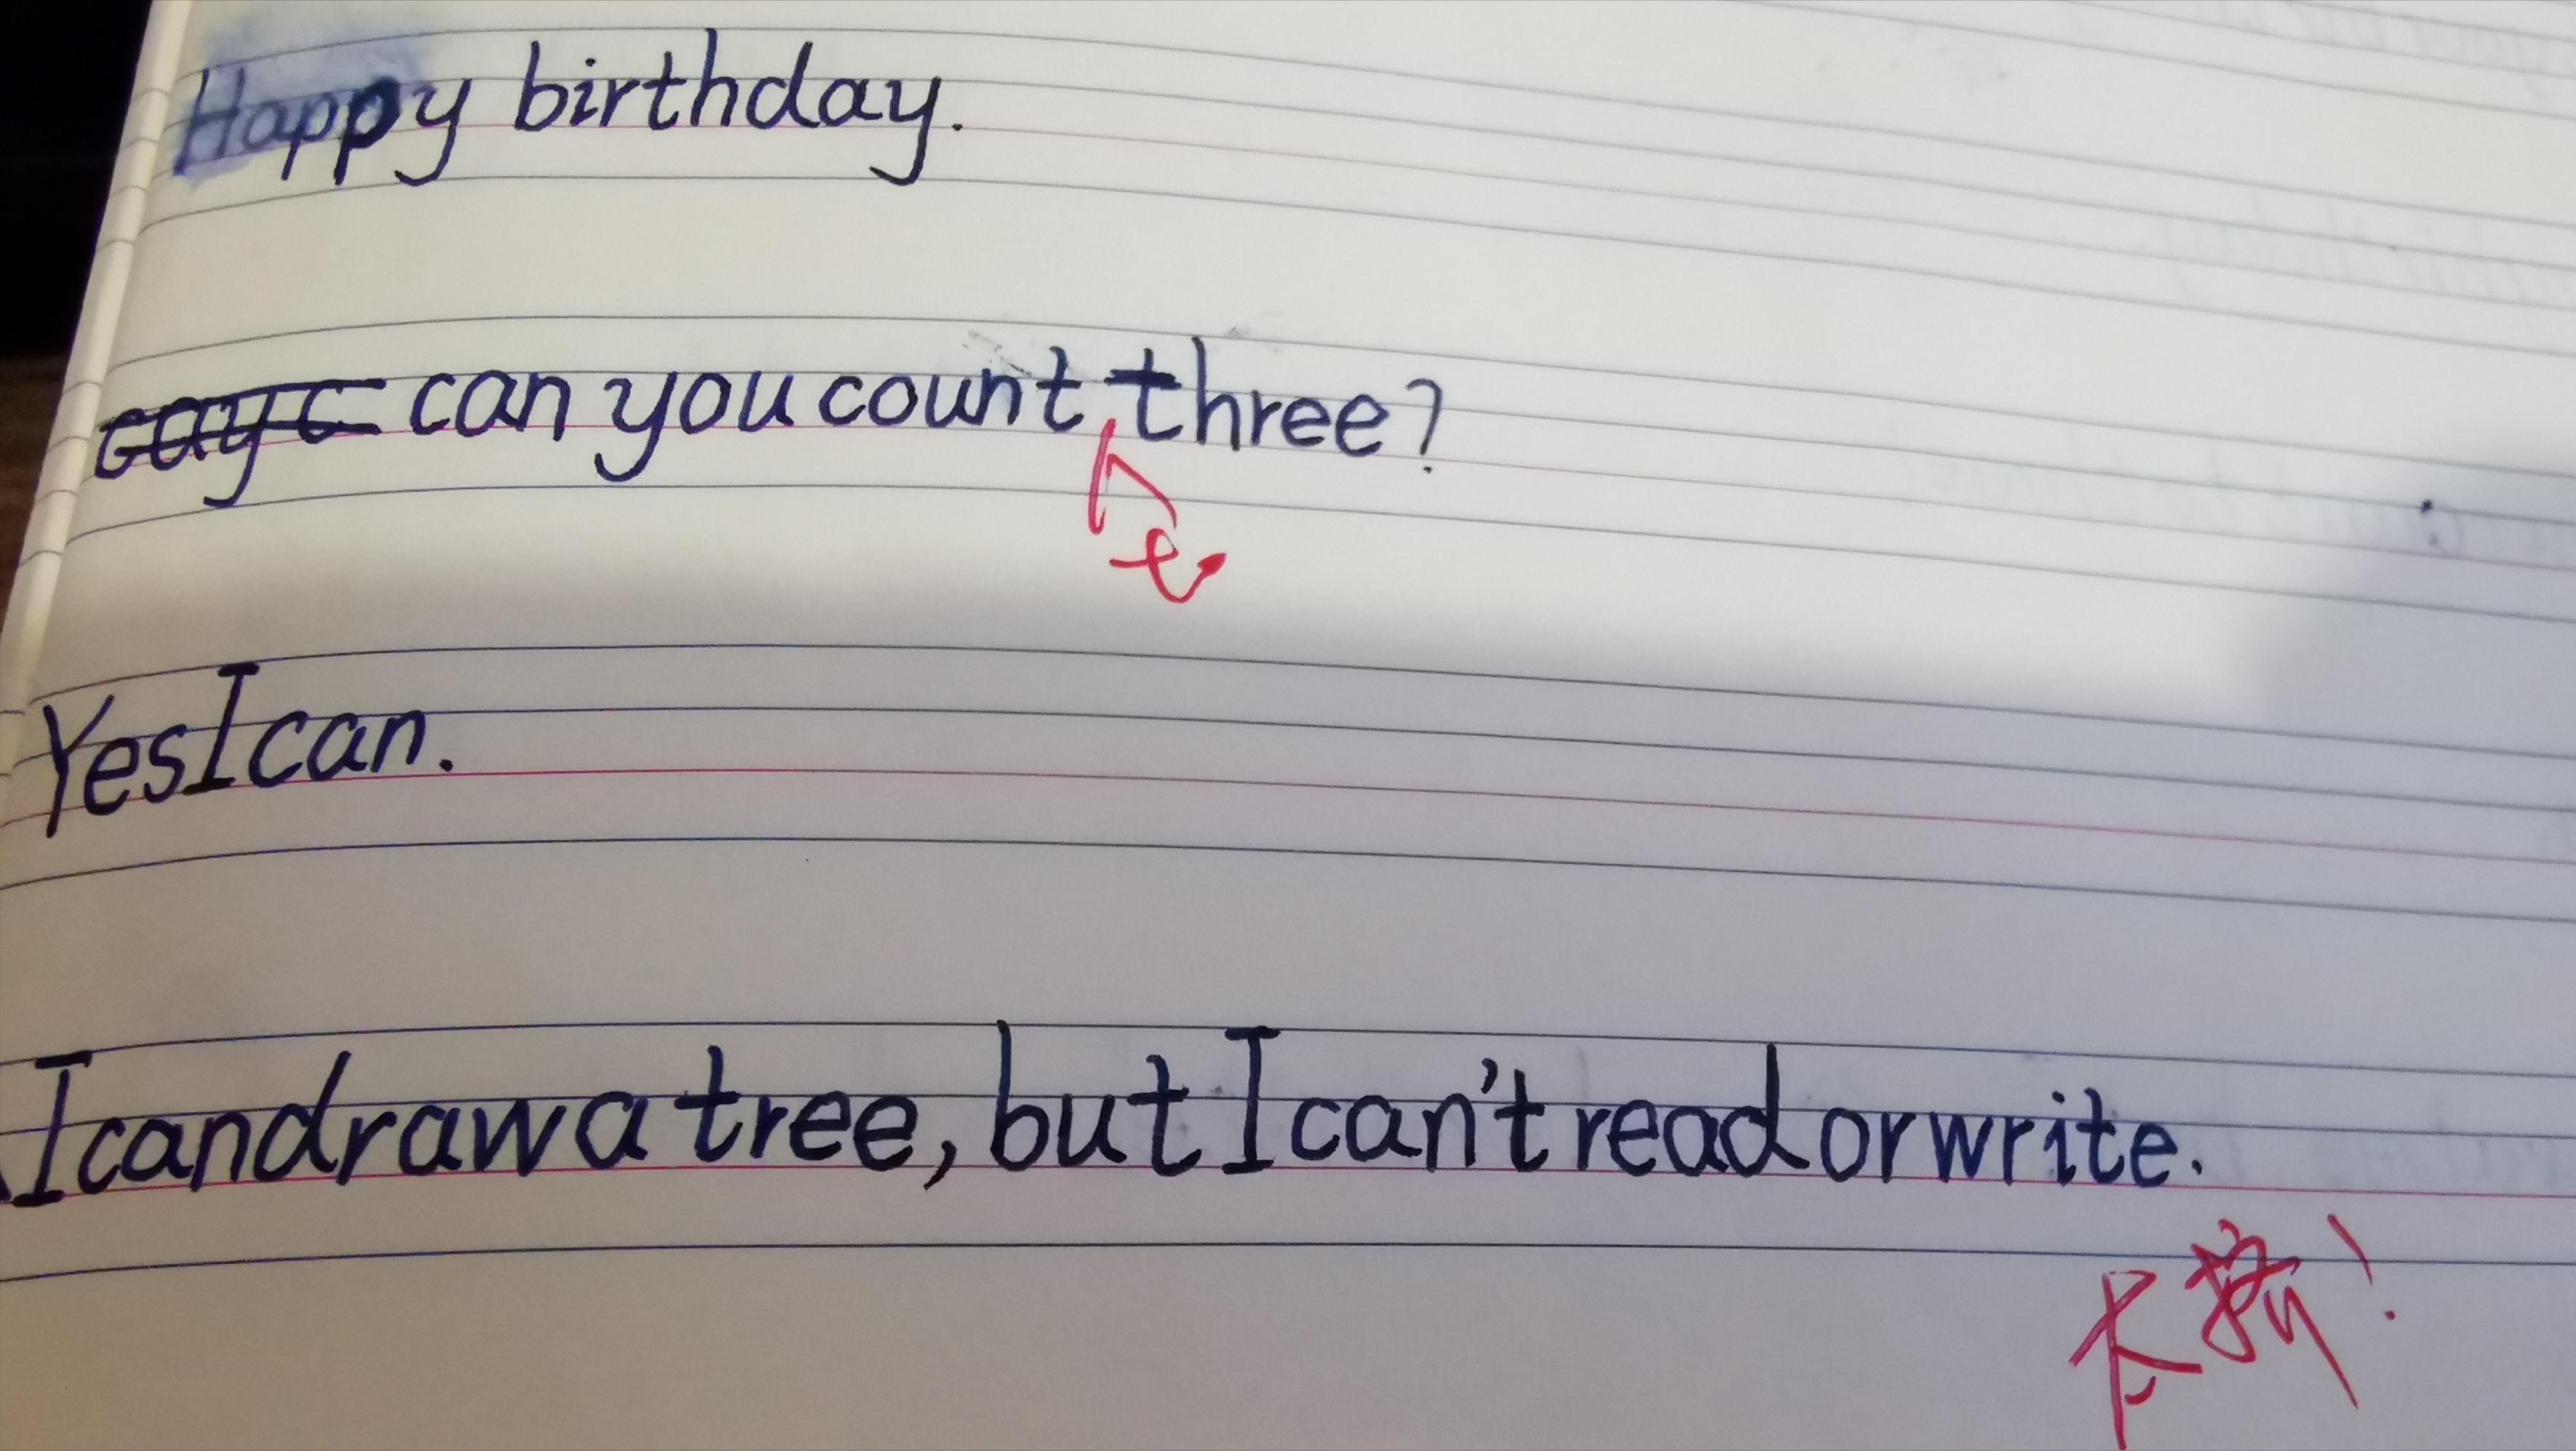 Happy birthday.
can you count three?
to
Yes I can.
I can draw a tree, but I can't read or write.
太挤!